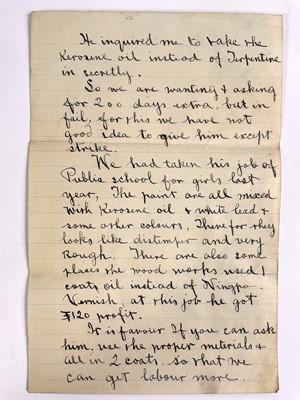 He inquired me to take the
Kerosene oil instead of Terpentine
in secretly.
So we are wanting & asking
for 200 days extra, but in
fail, for this we have not
good idea to give him except
strike.
We had taken his job of
Public school for girls last
year, The paint are all mixed
with Kerosene oil & white lead &
some other colours, There for they
looks like distimper and very
Rough, There are also some
places the wood works used 1
coats oil instead of Ningpo
Vernish, at this job he got
$120 profit.
It is favour If you can ask
him, use the proper materials &
all in 2 coats, so that we
can get labour more.